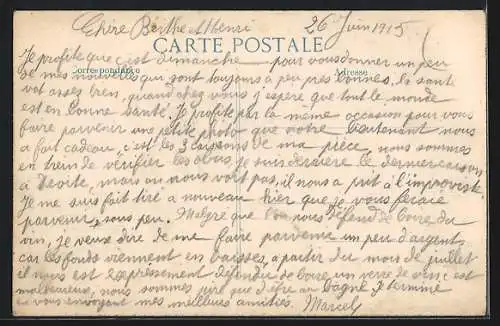 Chère Berthe et Henri 26 Juin 1915
CARTE POSTALE
Correspondance Adresse
Je profite que c'est dimanche pour vous donner un peu
de mes nouvelles qui sont toujours à peu près bonnes, la santé
va assez bien, quand chez vous j'espère que tout le monde
est en bonne santé. Je profite par la même occasion pour vous
faire parvenir une petite photo que notre lieutenant nous
a fait cadeau, c'est les 3 caissons de ma pièce, nous sommes
en train de vérifier les obus, je suis derrière le dernier caisson
à droite, mais on nous voit pas, il nous a prit à l'improviste.
Je me suis fait tiré a nouveau hier que je vous ferai
parvenir sous peu. Malgré que l'on nous défend de boire du
vin, je veux dire de me faire parvenir un peu d'argent
car les fonds viennent en baisses, a partir du mois de juillet
il nous est expressément défendu de boire un verre de vin c'est
malheureux, nous sommes pire que d'être au bagne. Je termine
en vous envoyant mes meilleures amitiés. Marcel